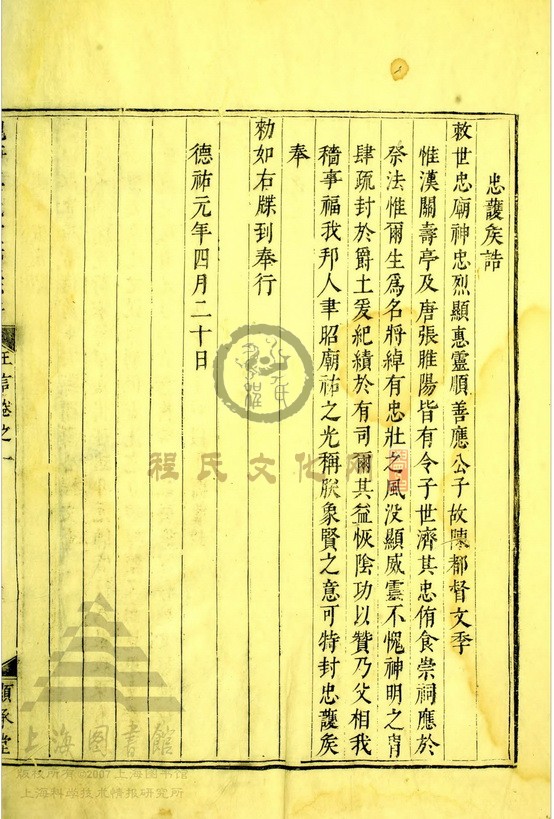 忠護矦誥
敕世忠廟神忠烈顯惠靈順善應公子故陳都督文季
惟漢關壽亭及唐張睢陽皆有令子世濟其忠侑食崇祠應於
祭法惟爾生爲名將綽有忠壯之風没顯威靈不愧神明之胄
肆疏封於爵土爰紀績於有司爾其益恢陰功以贊乃父相我
穡事福我邦人聿昭廟祐之光稱朕象賢之意可特封忠護矦
奉
勑如右牒到奉行
德祐元年四月二十日
王言卷之一
顯承堂
程氏文化网
上海图書館
版权所有©2007上海图书馆
上海科学技术情报研究所